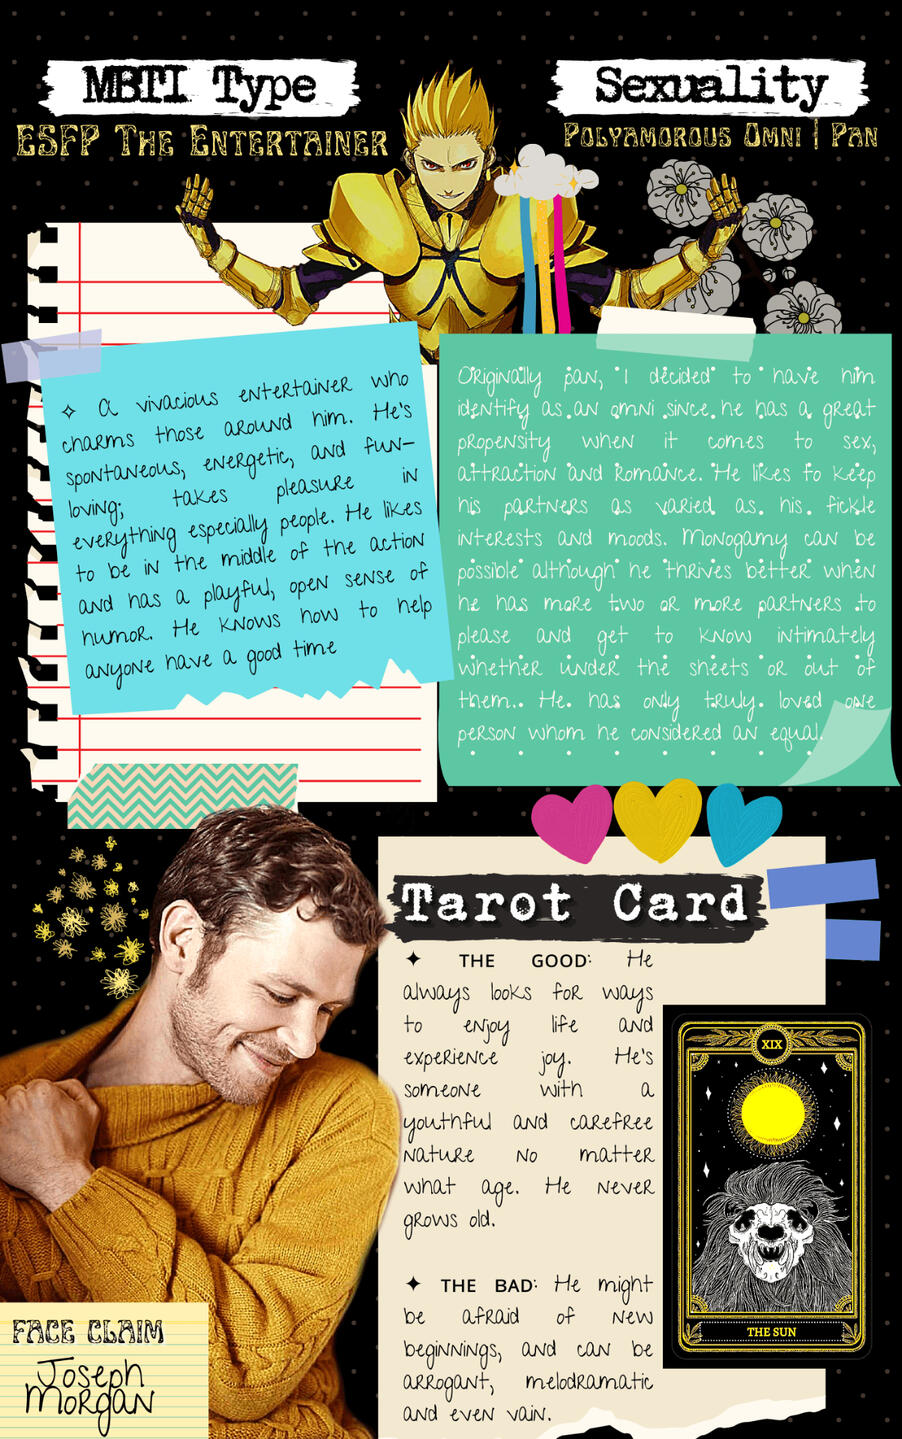 MBTI Type
ESFP The Entertainer
Sexuality
Polyamorous Omni | Pan
✧ A vivacious entertainer who
charms those around him. He's
spontaneous, energetic, and fun-
loving; takes pleasure in
everything especially people. He likes
to be in the middle of the action
and has a playful, open sense of
humor. He knows how to help
anyone have a good time
Originally pan, I decided to have him
identify as an omni since he has a great
propensity when it comes to sex,
attraction and romance. He likes to keep
his partners as varied as his fickle
interests and moods. Monogamy can be
possible although he thrives better when
he has more two or more partners to
please and get to know intimately
whether under the sheets or out of
them. He has only truly loved one
person whom he considered an equal.
Tarot Card
✦ THE GOOD: He
always looks for ways
to enjoy life and
experience joy. He's
someone with a
youthful and carefree
nature no matter
what age. He never
grows old.
✦ THE BAD: He might
be afraid of new
beginnings, and can be
arrogant, melodramatic
and even vain.
XIX
THE SUN
FACE CLAIM
Joseph
Morgan